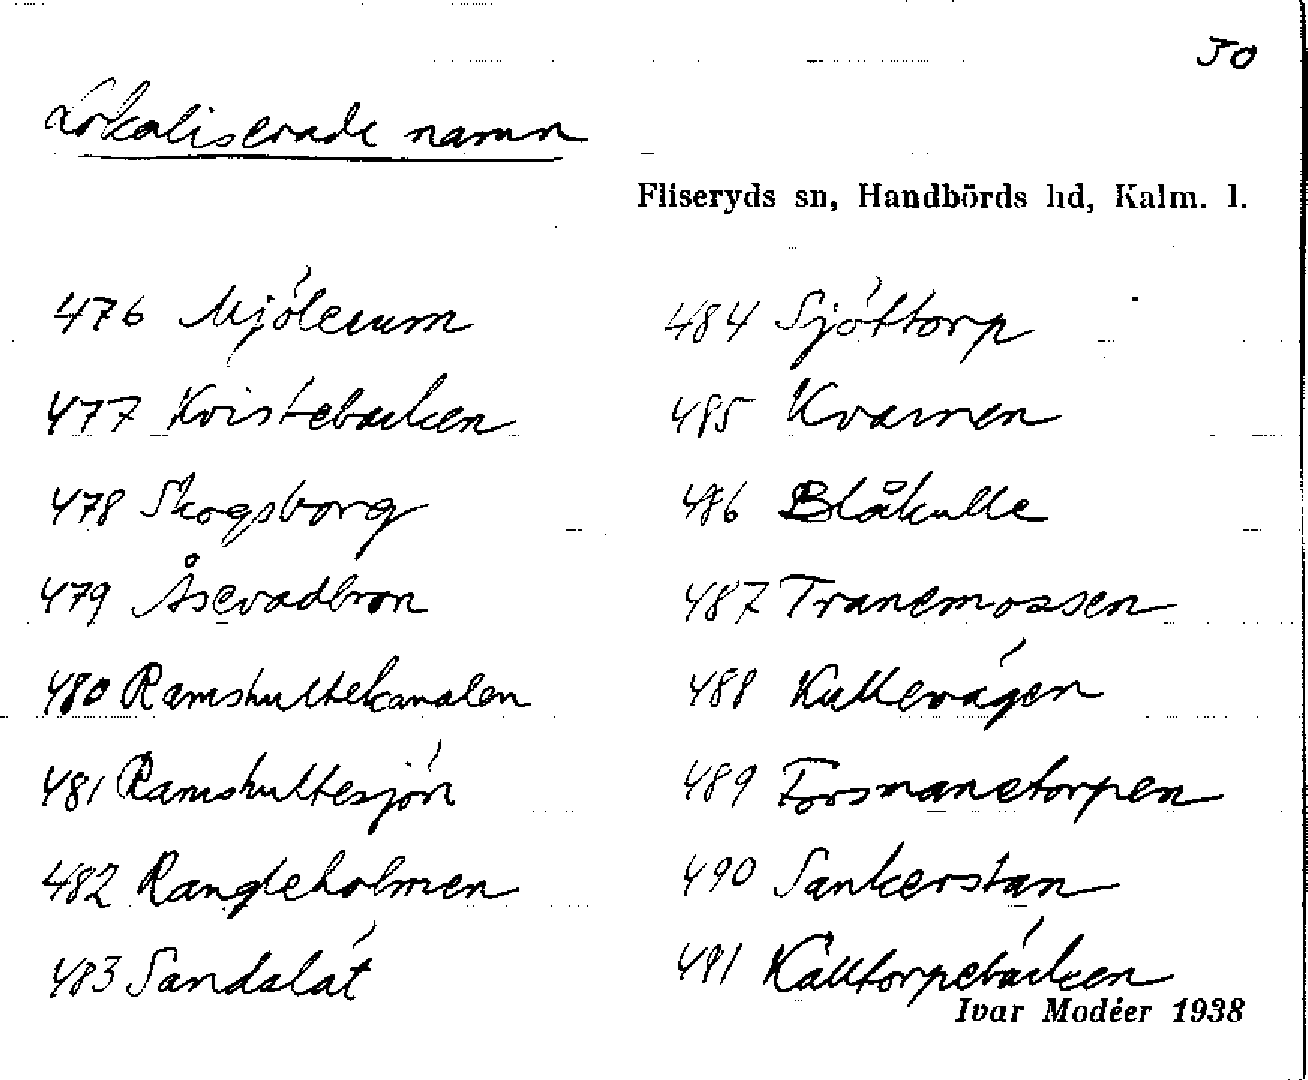 50
Lokaliserade namn
Fliseryds sn, Handbörds hd, Kalm. l.
476 Mjölerum
477 Kvistebacken
478 Skogsborg
479 Åsevadbron
480 Ramshultekanalen
481 Ramshultesjön
482 Rangleholmen
483 Sandslät
484 Sjöttorp
485 Kvarnen
486 Blåkulle
487 Tranemossen
488 Kullevägen
489 Forsmanetorpen
490 Sankerstan
491 Källtorpebäcken
Ivar Modéer 1938